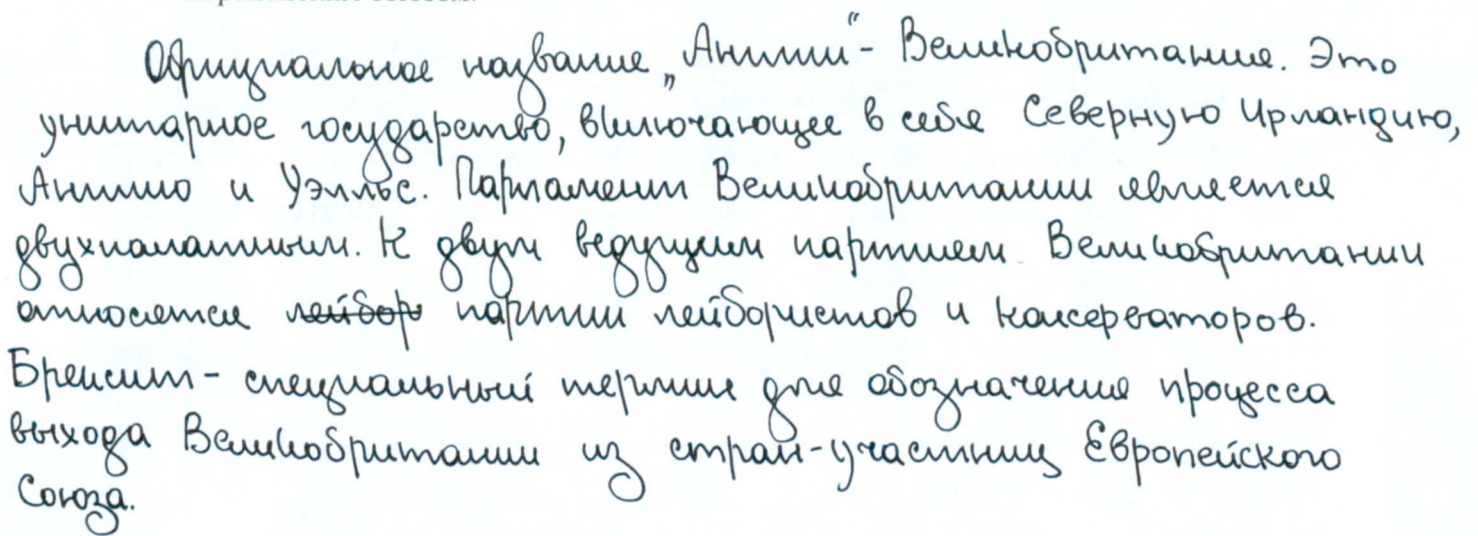 Официальное название „Англии“ - Великобритания. Это
унитарное государство, включающее в себя Северную Ирландию,
Англию и Уэлльс. Парламент Великобритании является
двухпалатным. К двум ведущим партиям Великобритании
относятся лейбор партии лейбористов и консерваторов.
Брексит - специальный термин для обозначения процесса
выхода Великобритании из стран-участниц Европейского
Союза.